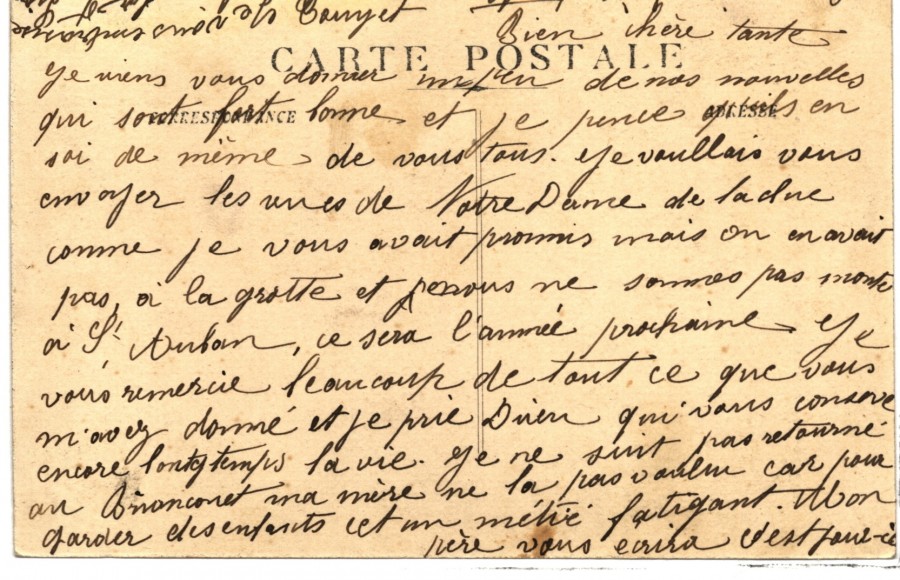 Bouyet
Bien chère tante
CARTE POSTALE
Je viens vous donner un peu de nos nouvelles
CORRESPONDANCE ADRESSE
qui sont fort bonne et je pence qu'ils en
soi de même de vous tous. Je voullais vous
envoyer les vues de Notre Dame de la
comme je vous avait promis mais on en avait
pas, à la grotte et nous ne sommes pas monté
à St Auban, ce sera l'année prochaine Je
vous remercie beaucoup de tout ce que vous
m'avez donné et je prie Dieu qui vous conserve
encore longtemps la vie. Je ne suit pas retourné
au Briançonet ma mère ne la pas voulu car pour
garder des enfants cet un métié fatigant. Mon
père vous ecrira c'est pour-ce